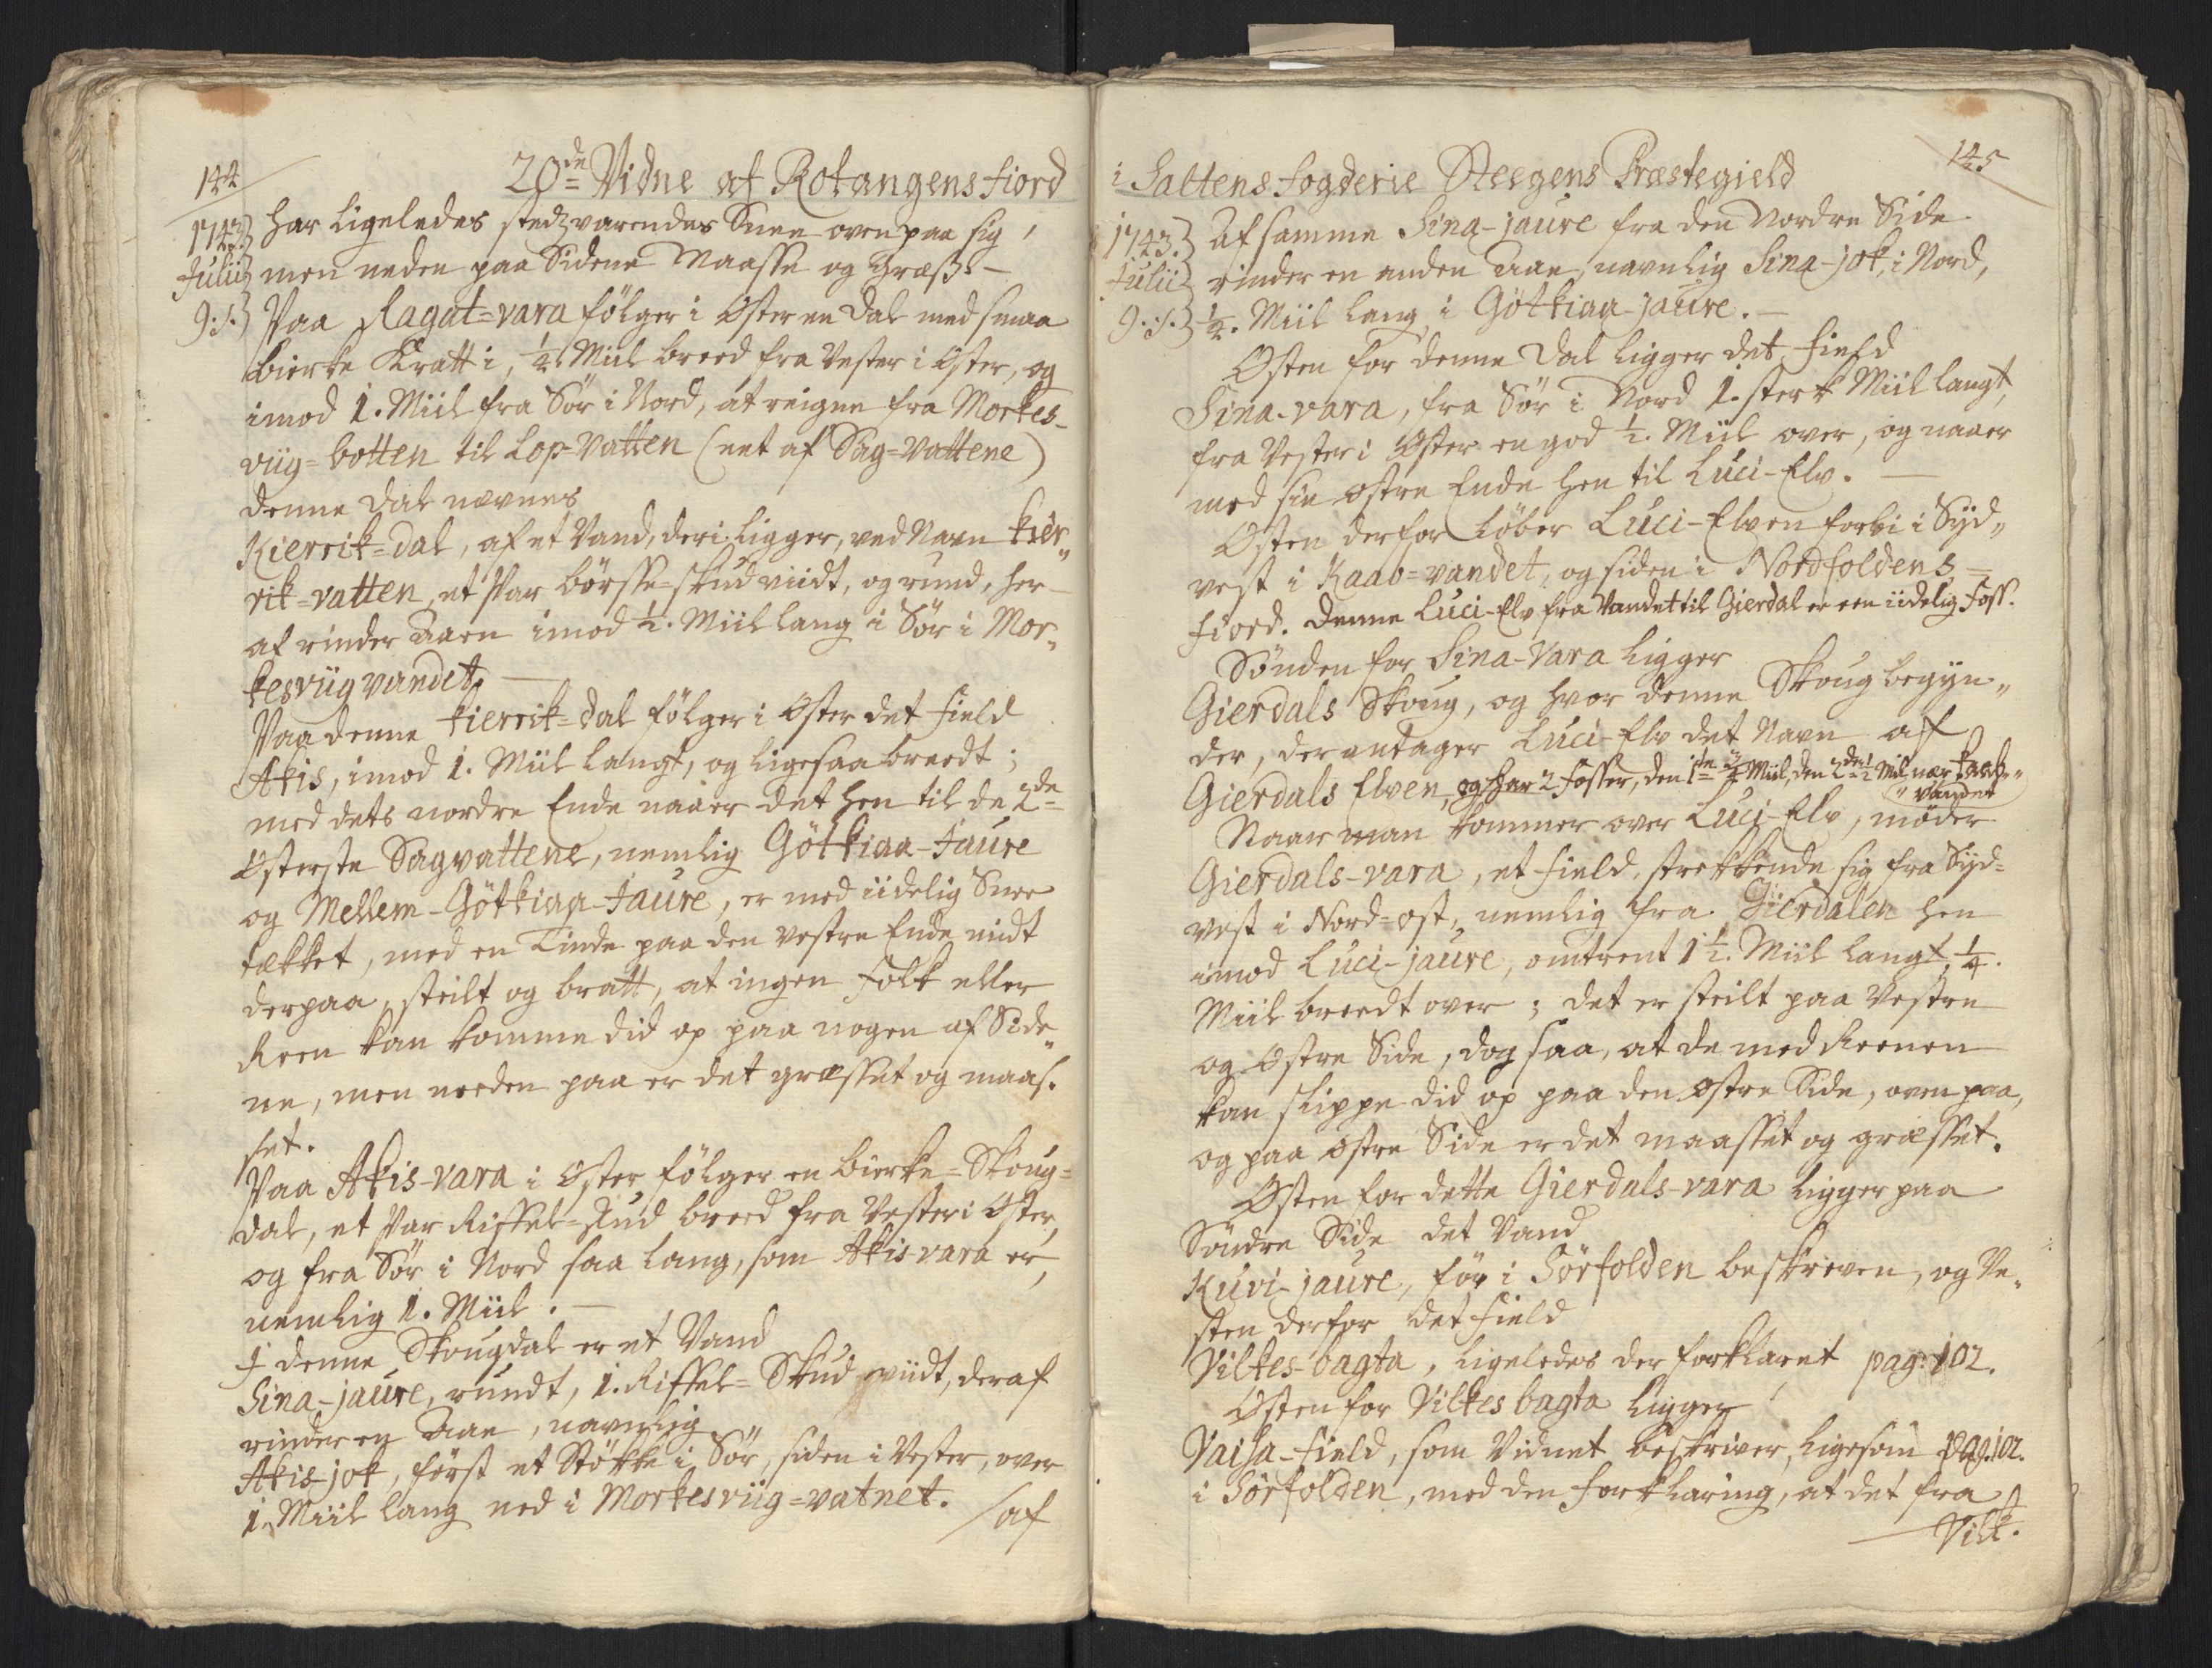 144
20de Vidne af Rotangens fiord
1743.
Julii
9. s.
har ligeledes stedzvarendes Snee oven paa sig,
men neden paa Sidene Maasse og Græs. –
Paa Ragat=vara fölger i Oster en dal med smaa
bierke Kratt i, ½ Miil breed fra Vester i Oster, og
imod 1. Miil fra Sör i Nord, at reigne fra Morkes-
viig=botten til Lop-Vatten (eet af Sag=Vattene)
denne dal nævnes
Kierrik=dal, af et Vand, deri ligger, ved Navn Kier„
rik=vatten, et Par börsse=skud viidt, og rund, her-
af rinder Aaen imod ½. Miil lang i Sör i Mor„
kesviig vandet. –
Paa denne Kierrik=dal fölger i Oster det field
Akis, imod 1. Miil langt, og ligesaa breedt;
med dets nordre Ende naaer det hen til de 2de
Osterste Sagvattene, nemlig Götkiaa-Jaure
og Mellem-Götkiaa-Jaure, er med iidelig Snee
tækket, med en Tinde paa den vestre Ende midt
derpaa, steilt og bratt, at ingen Folk eller
Reen kan komme did op paa nogen af Side„
ne, men neden paa er det græsset og maas-
set.
Paa Akis-vara i Oster fölger en bierke=Skoug=
dal, et Par Riffel=Skud breed fra Vester i Oster,
og fra Sör i Nord saa lang, som Akis vara er,
nemlig 1. Miil. –
I denne Skougdal er et Vand
Sina-jaure, rundt, 1. Riffel=Skud viidt, deraf
rinder en Aae, navnlig
Akis-jok, först et Stökke i Sör, siden i Vester, over
1. Miil lang ned i Morkesviig=vatnet.
/af
i Saltens fogderie Steegens Præstegield
145
1743.
Julii
9. s.
Af samme Sina-jaure fra den Nordre Side
rinder en anden Aae, navnlig Sina-jok, i Nord,
½. Miil lang i Götkiaa-jaure. –
Osten for denne dal ligger det field
Sina-vara, fra Sör i Nord 1. sterk Miil langt,
fra Vester i Oster en god ½. Miil over, og naaer
med sin ostre Ende hen til Luci-Elv. –
Osten derfor löber Luci-Elven forbi i Syd„
vest i Kaab=vandet, og siden i Nordfoldens=
fiord. Denne Luci-Elv fra Vandet til Gierdal er een iidelig Foss.
Sönden for Sina-Vara ligger
Gierdals Skoug, og hvor denne Skoug begyn„
der, der antager Luci-Elv det Navn af
Gierdals Elven, og har 2 Fosser, den 1te ¾ Miil, den 2den ½ Miil nær Kaab„
„vandet
Naar man kommer over Luci-Elv, möder
Gierdals-vara, et field, strekkende sig fra Syd=
vest i Nord=ost, nemlig fra Gierdalen hen
imod Luci-jaure, omtrent 1½. Miil langt, ¼.
Miil breedt over; det er steilt paa Vestre
og Ostre Side, dog saa, at de med Reenen
kan slippe did op paa den ostre Side, oven paa,
og paa ostre Side er det maasset og græsset.
Osten for dette Gierdals-vara ligger paa
Söndre Side det Vand
Kuvi-jaure, för i Sörfolden beskreven, og Ve„
sten derfor det field
Vilkes-bagta, ligeledes der forklaret pag: 102.
Osten for Vilkes bagta ligger
Vaisa-field, som Vidnet beskriver, ligesom pag. 102.
i Sörfolden, med den Forklaring, at det fra
Vilk-